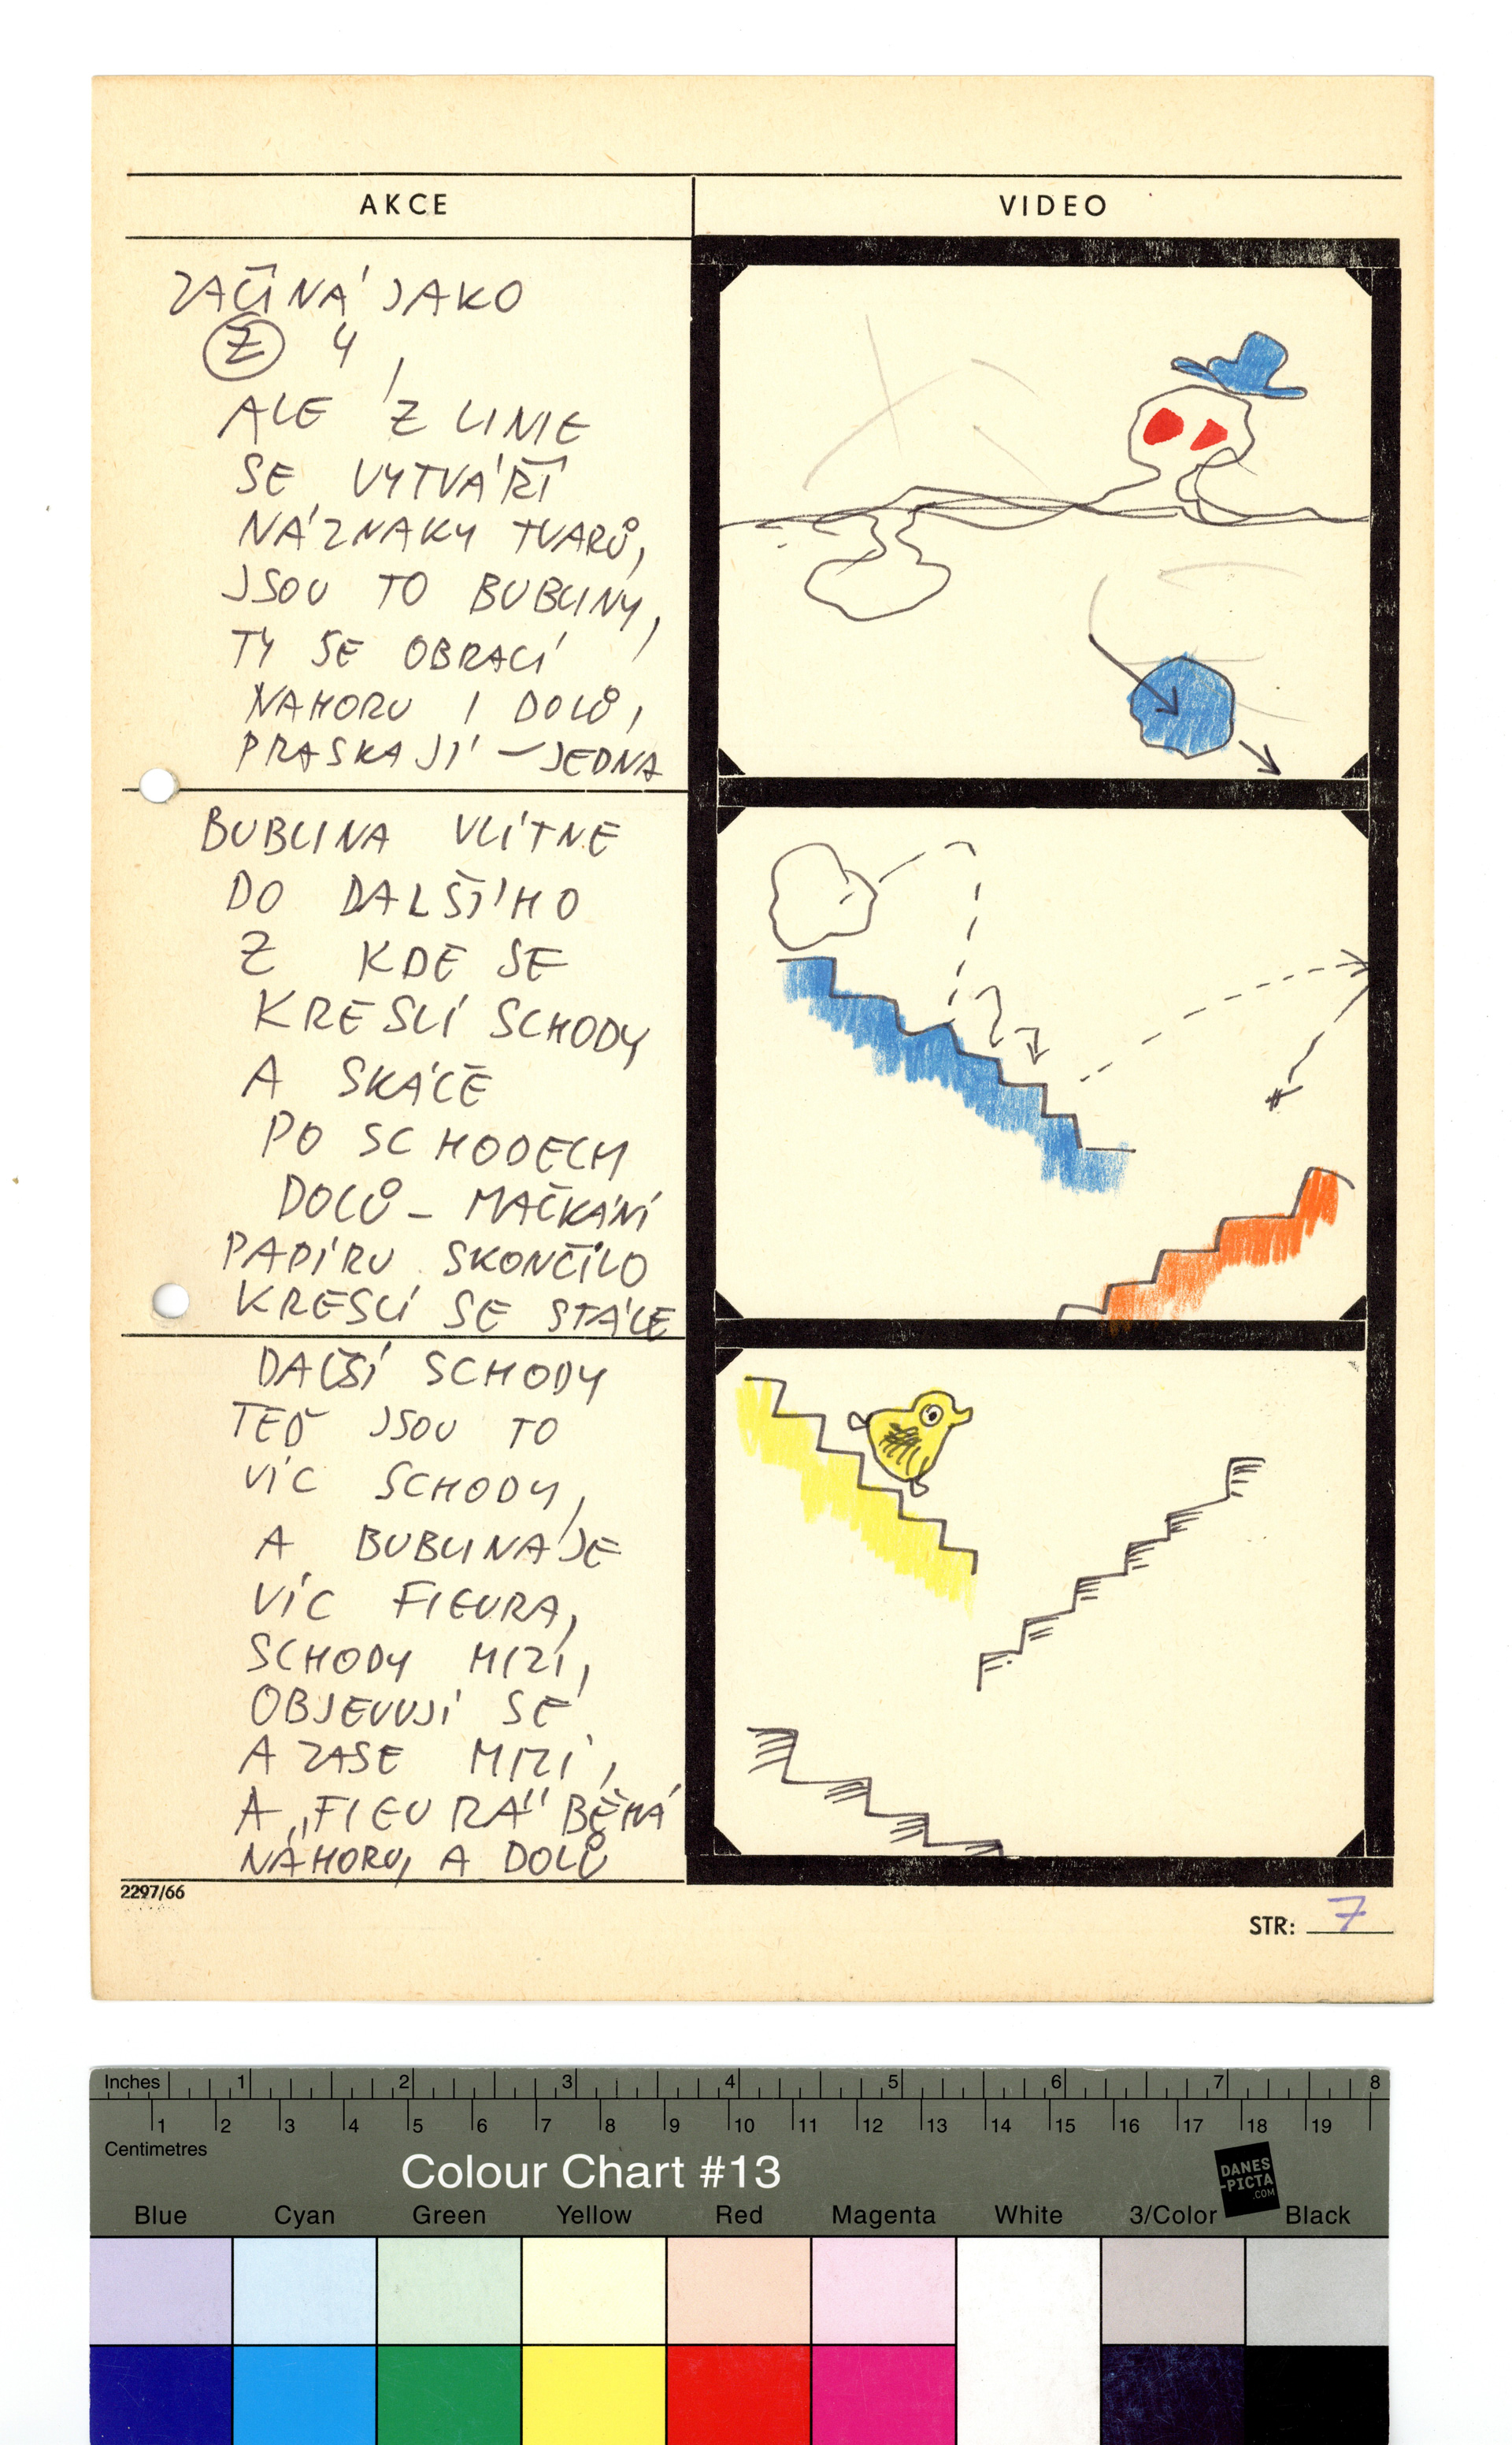 AKCE
VIDEO
ZAČÍNÁ JAKO
Z 4,
ALE Z LINIE
SE VYTVÁŘÍ
NÁZNAKY TVARŮ,
JSOU TO BUBLINY,
TY SE OBRACÍ
NAHORU I DOLŮ,
PRASKAJÍ – JEDNA
BUBLINA VLÍTNE
DO DALŠÍHO
Z KDE SE
KRESLÍ SCHODY
A SKÁČE
PO SCHODECH
DOLŮ – MAČKÁNÍ
PAPÍRU SKONČILO
KRESLÍ SE STÁLE
DALŠÍ SCHODY
TEĎ JSOU TO
VÍC SCHODY,
A BUBLINA JE
VÍC FIGURA,
SCHODY MIZÍ,
OBJEVUJÍ SE
A ZASE MIZÍ,
A „FIGURA" BĚHÁ
NAHORU, A DOLŮ
2297/66
STR: 7
Inches 1 2 3 4 5 6 7 8
1 2 3 4 5 6 7 8 9 10 11 12 13 14 15 16 17 18 19
Centimetres
Colour Chart #13
DANES
-PICTA
.COM
Blue Cyan Green Yellow Red Magenta White 3/Color Black